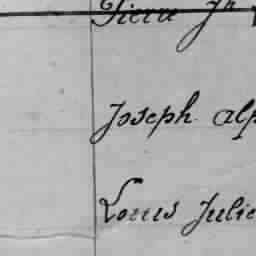 Pierre Jh
Joseph Alp
Louis Julie